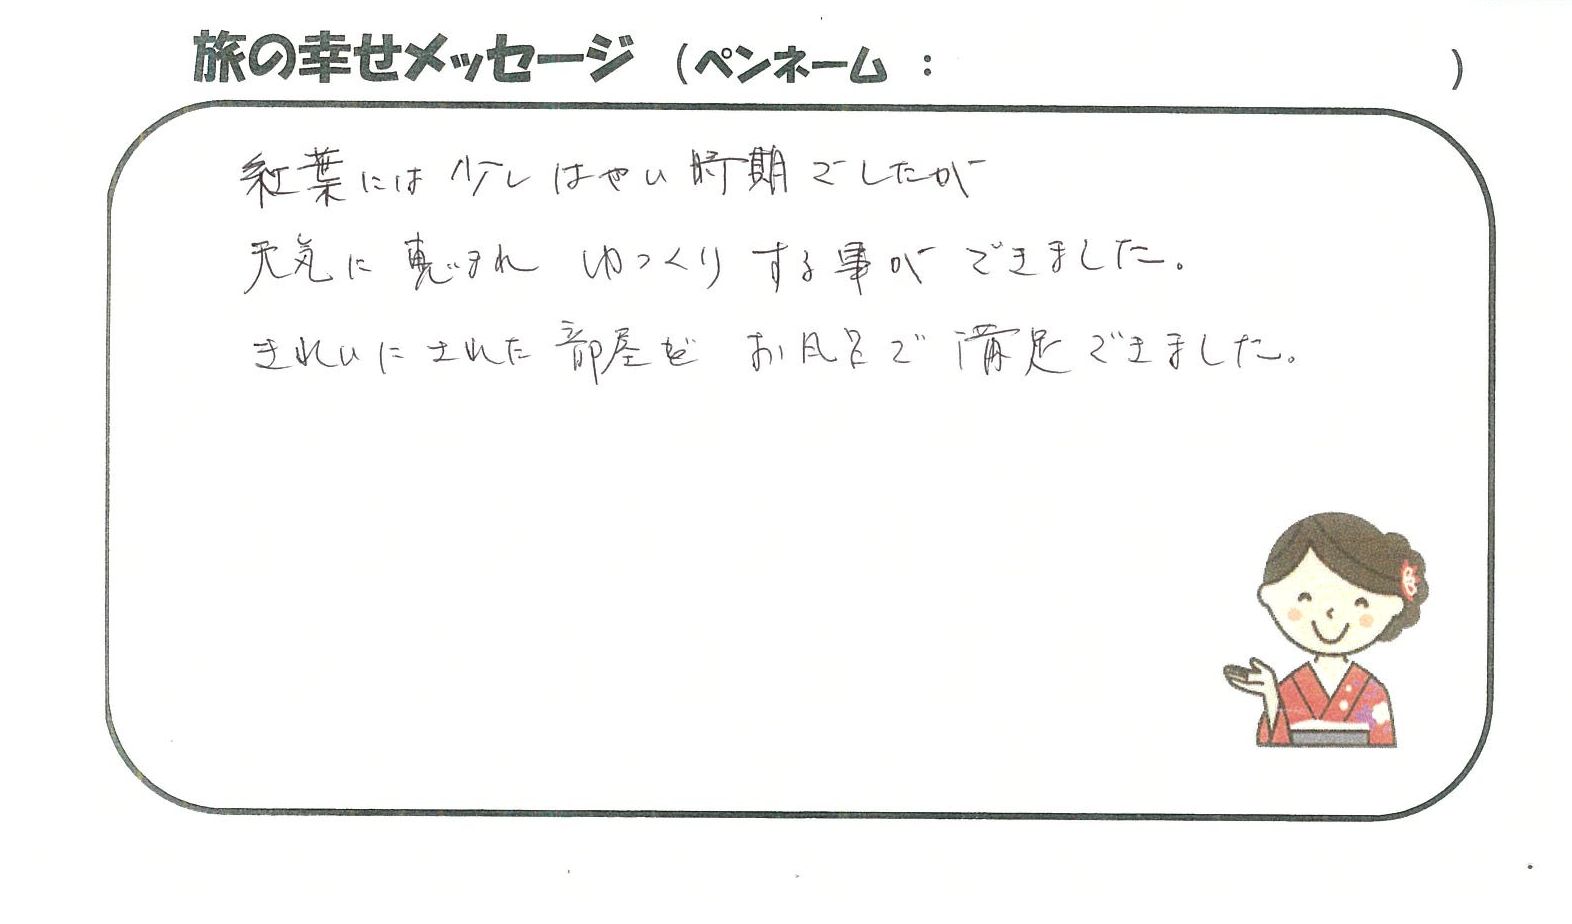 旅の幸せメッセージ (ペンネーム : )
紅葉には少しはやい時期でしたが
天気に恵まれ ゆっくりする事ができました。
きれいにされた部屋と お風呂で満足できました。